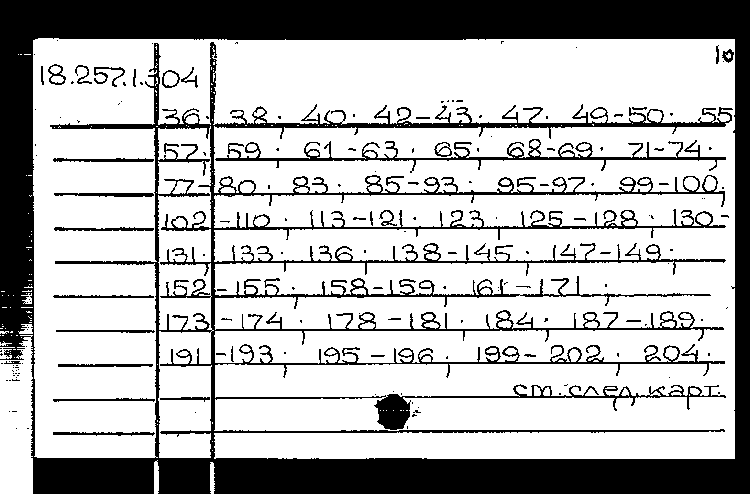 10
18.257.1.304
36; 38; 40; 42-43; 47; 49-50; 55
57; 59; 61-63; 65; 68-69; 71-74;
77-80; 83; 85-93; 95-97; 99-100;
102-110; 113-121; 123; 125-128; 130-
131; 133; 136; 138-145; 147-149;
152-155; 158-159; 161-171;
173-174; 178-181; 184; 187-189;
191-193; 195-196; 199-202; 204;
см. след. карт.